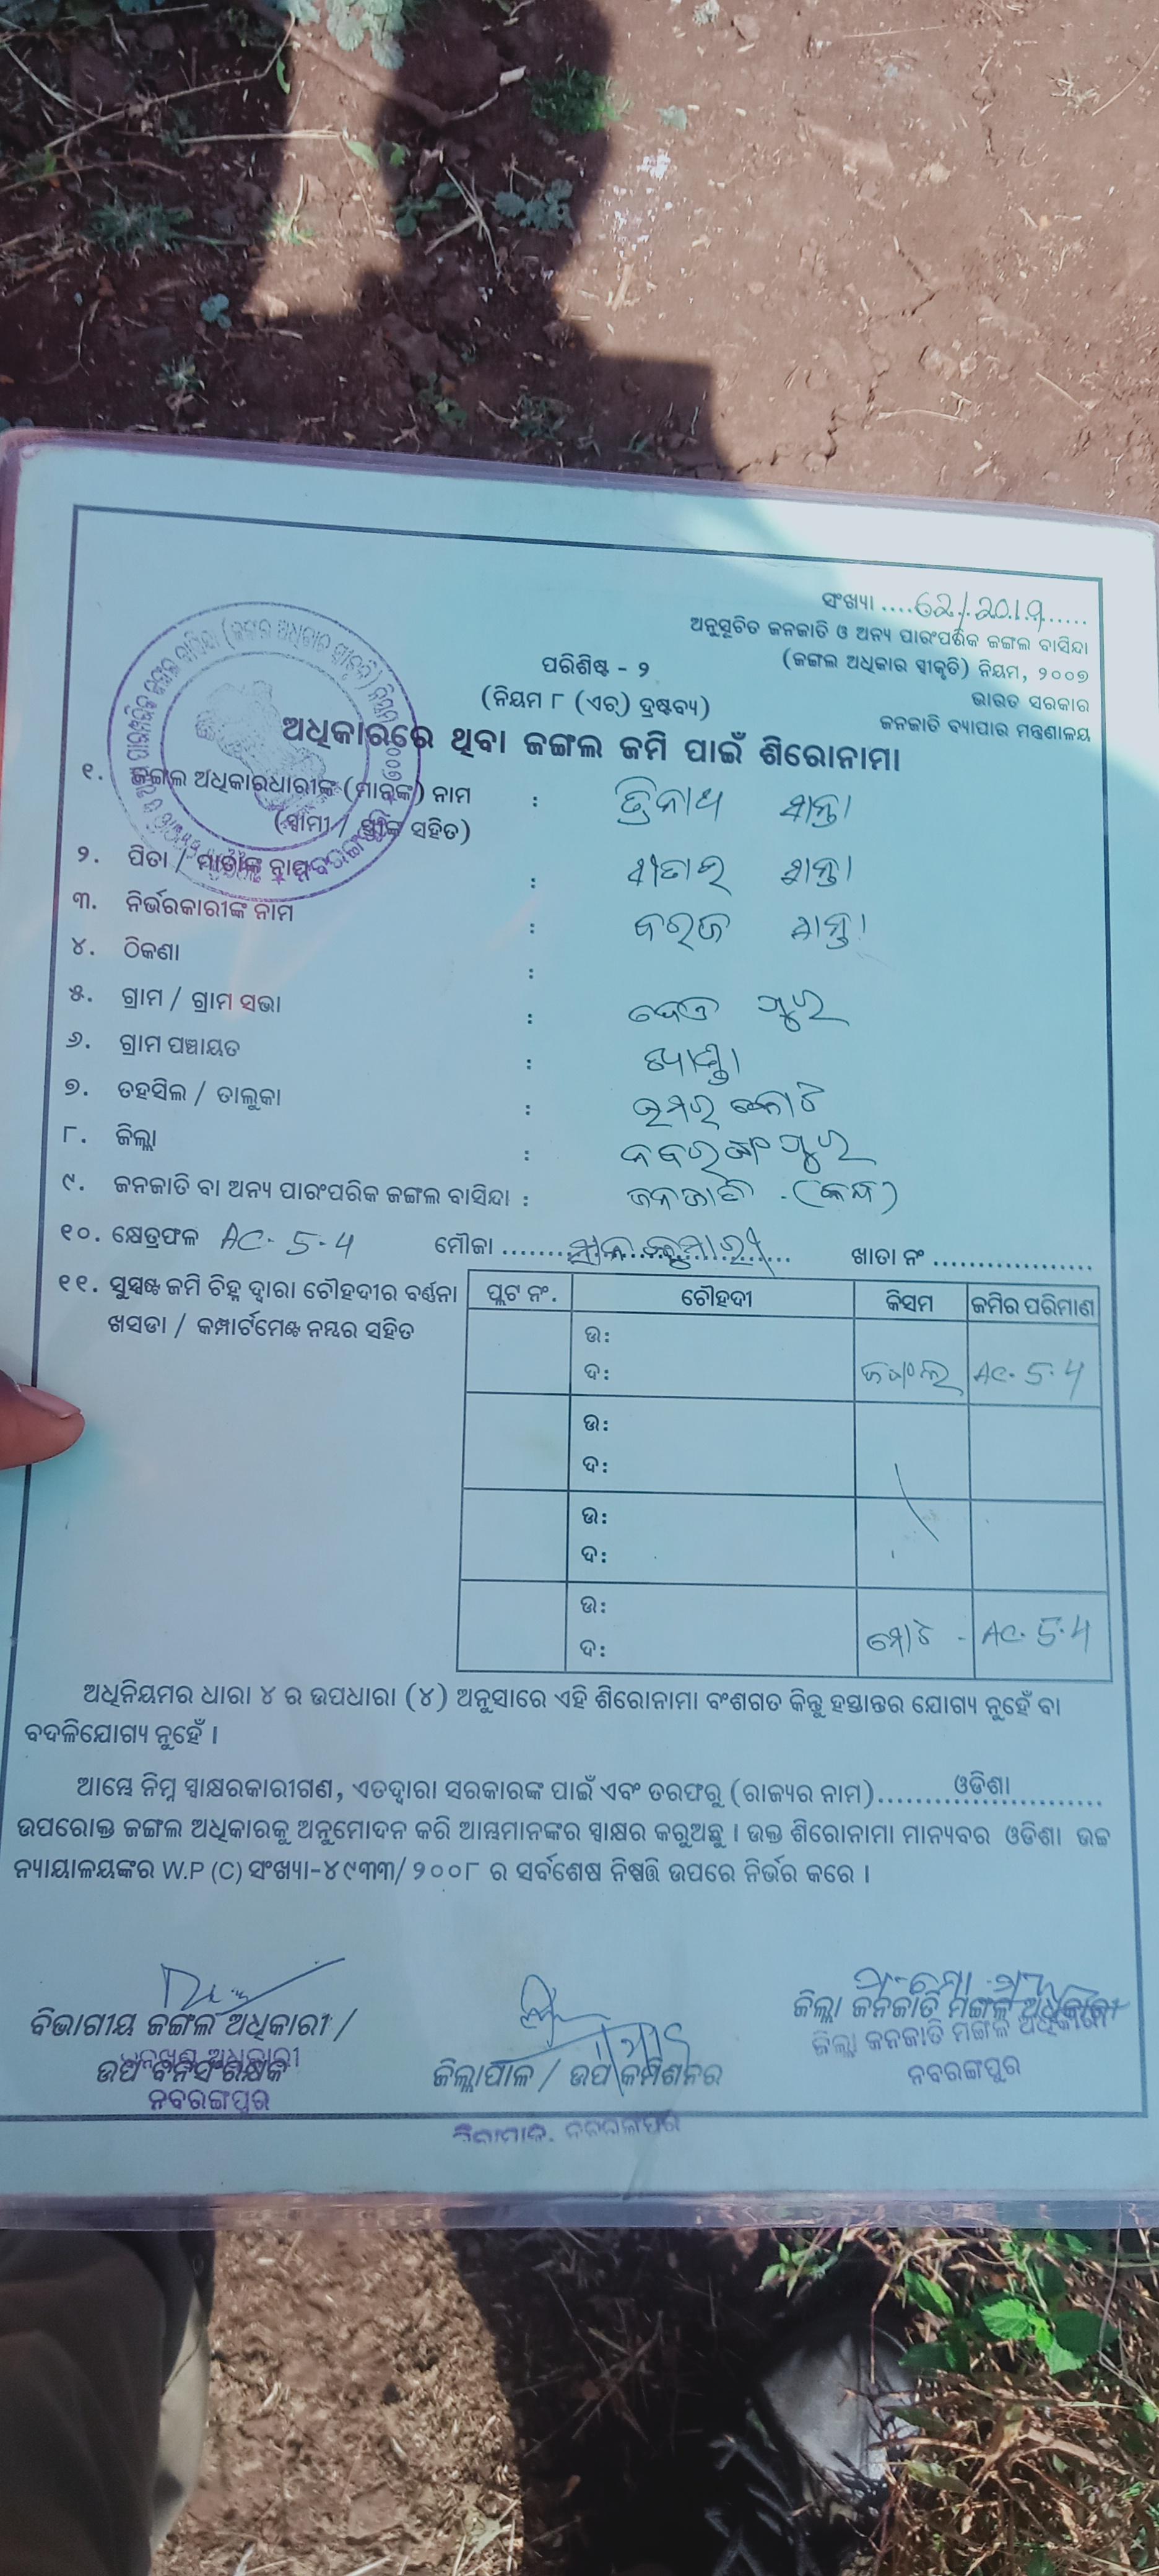 ସଂଖ୍ୟା ....62/2019......
ଅନୁସୂଚିତ ଜନଜାତି ଓ ଅନ୍ୟ ପାରଂପରିକ ଜଙ୍ଗଲ ବାସିନ୍ଦା
(ଜଙ୍ଗଲ ଅଧିକାର ସ୍ୱୀକୃତି) ନିୟମ, ୨୦୦୭
ଭାରତ ସରକାର
ଜନଜାତି ବ୍ୟାପାର ମନ୍ତ୍ରଣାଳୟ
ପରିଶିଷ୍ଟ - ୨
(ନିୟମ ୮ (ଏଚ୍) ଦ୍ରଷ୍ଟବ୍ୟ)
ଅଧିକାରରେ ଥିବା ଜଙ୍ଗଲ ଜମି ପାଇଁ ଶିରୋନାମା
୧. ଜଙ୍ଗଲ ଅଧିକାରଧାରୀଙ୍କ (ମାନଙ୍କ) ନାମ : ତ୍ରିନାଥ ଶାନ୍ତା
(ସ୍ୱାମୀ / ସ୍ତ୍ରୀଙ୍କ ସହିତ)
୨. ପିତା / ମାତାଙ୍କ ନାମ : ଶାନ୍ତା
୩. ନିର୍ଭରକାରୀଙ୍କ ନାମ : ଶାନ୍ତା
୪. ଠିକଣା :
୫. ଗ୍ରାମ / ଗ୍ରାମ ସଭା :
୬. ଗ୍ରାମ ପଞ୍ଚାୟତ :
୭. ତହସିଲ / ତାଲୁକା : ଉମରକୋଟ
୮. ଜିଲ୍ଲା : ନବରଙ୍ଗପୁର
୯. ଜନଜାତି ବା ଅନ୍ୟ ପାରଂପରିକ ଜଙ୍ଗଲ ବାସିନ୍ଦା : ଜନଜାତି . (କନ୍ଧ)
୧୦. କ୍ଷେତ୍ରଫଳ AC. 5.4 ମୌଜା .............. ଖାତା ନଂ ..................
୧୧. ସୁସ୍ପଷ୍ଟ ଜମି ଚିହ୍ନ ଦ୍ୱାରା ଚୌହଦୀର ବର୍ଣ୍ଣନା
ଖସଡା / କମ୍ପାର୍ଟମେଣ୍ଟ ନମ୍ବର ସହିତ
ପ୍ଲଟ ନଂ. ଚୌହଦୀ କିସମ ଜମିର ପରିମାଣ
ଉ:
ଦ: ଜଙ୍ଗଲ AC. 5.4
ଉ:
ଦ:
ଉ:
ଦ:
ଉ:
ଦ: ମୋଟ - AC. 5.4
ଅଧିନିୟମର ଧାରା ୪ ର ଉପଧାରା (୪) ଅନୁସାରେ ଏହି ଶିରୋନାମା ବଂଶଗତ କିନ୍ତୁ ହସ୍ତାନ୍ତର ଯୋଗ୍ୟ ନୁହେଁ ବା
ବଦଳିଯୋଗ୍ୟ ନୁହେଁ ।
ଆମ୍ଭେ ନିମ୍ନ ସ୍ୱାକ୍ଷରକାରୀଗଣ, ଏତଦ୍ୱାରା ସରକାରଙ୍କ ପାଇଁ ଏବଂ ତରଫରୁ (ରାଜ୍ୟର ନାମ)........ଓଡିଶା..........
ଉପରୋକ୍ତ ଜଙ୍ଗଲ ଅଧିକାରକୁ ଅନୁମୋଦନ କରି ଆମ୍ଭମାନଙ୍କର ସ୍ୱାକ୍ଷର କରୁଅଛୁ । ଉକ୍ତ ଶିରୋନାମା ମାନ୍ୟବର ଓଡିଶା ଉଚ୍ଚ
ନ୍ୟାୟାଳୟଙ୍କର W.P (C) ସଂଖ୍ୟା-୪୯୩୩/୨୦୦୮ ର ସର୍ବଶେଷ ନିଷ୍ପତ୍ତି ଉପରେ ନିର୍ଭର କରେ ।
ବିଭାଗୀୟ ଜଙ୍ଗଲ ଅଧିକାରୀ /
ଉପ ବନସଂରକ୍ଷକ
ବନଖଣ୍ଡ ଅଧିକାରୀ
ନବରଙ୍ଗପୁର
ଜିଲ୍ଲାପାଳ / ଉପ କମିଶନର
ଜିଲ୍ଲାପାଳ, ନବରଙ୍ଗପୁର
ଜିଲ୍ଲା ଜନଜାତି ମଙ୍ଗଳ ଅଧିକାରୀ
ଜିଲ୍ଲା ଜନଜାତି ମଙ୍ଗଳ ଅଧିକାରୀ
ନବରଙ୍ଗପୁର